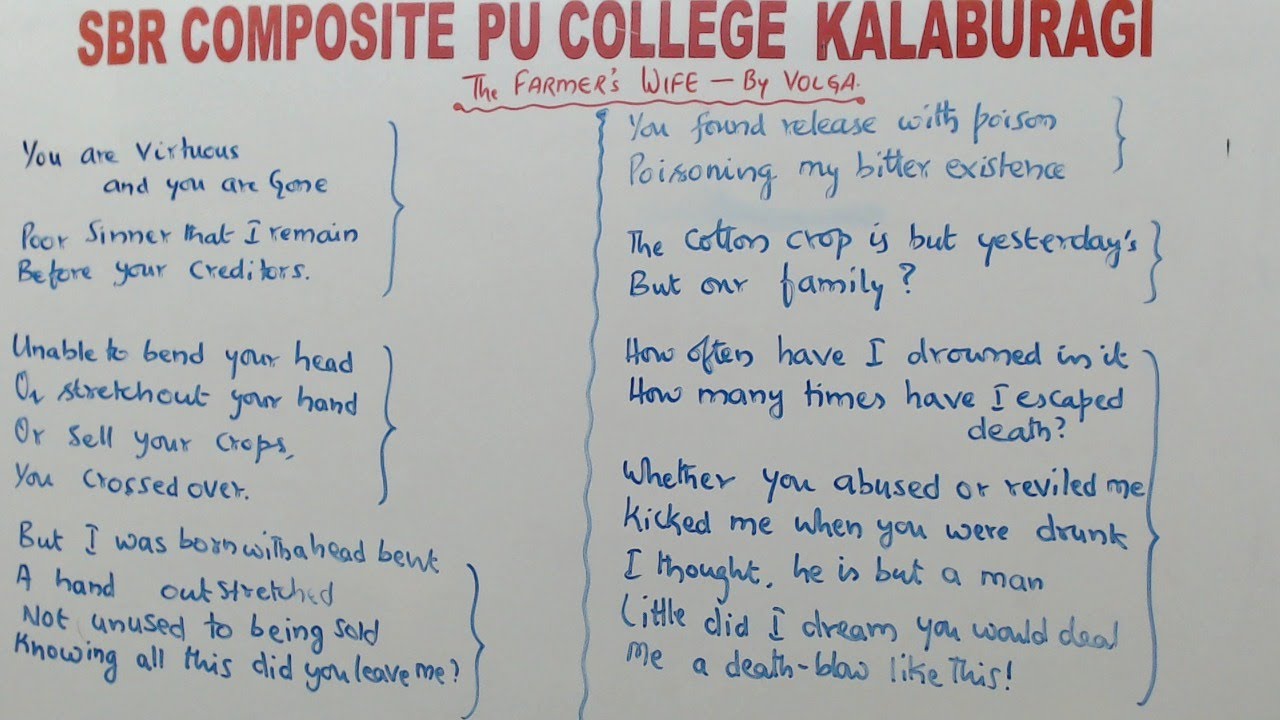 SBR COMPOSITE PU COLLEGE KALABURAGI
The FARMER'S WIFE - By VOLGA.
You are virtuous
and you are Gone
Poor Sinner that I remain
Before your Creditors.
Unable to bend your head
Or stretchout your hand
Or sell your crops,
You crossed over.
But I was born with a head bent
A hand outstretched
Not unused to being sold
Knowing all this did you leave me?
You found release with poison
Poisoning my bitter existence
The cotton crop is but yesterday's
But our family?
How often have I drowned in it
How many times have I escaped
death?
Whether you abused or reviled me
Kicked me when you were drunk
I thought, he is but a man
Little did I dream you would deal
me a death-blow like this!